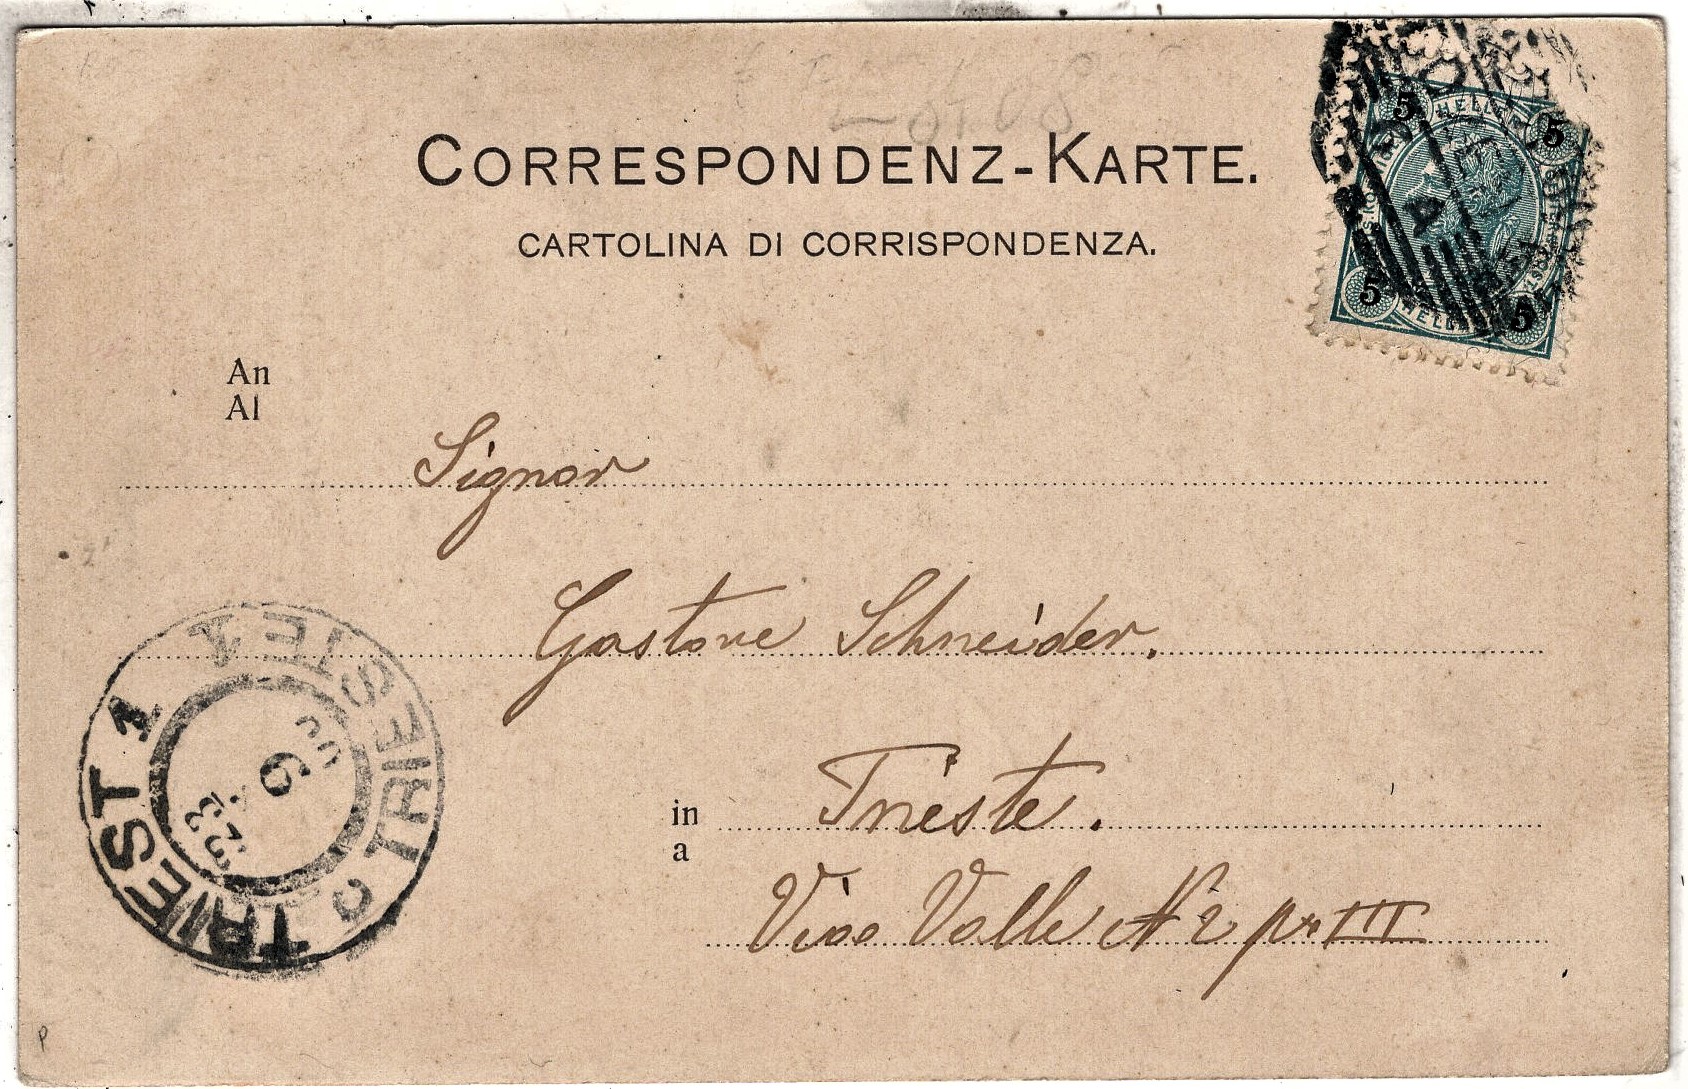 CORRESPONDENZ-KARTE.
CARTOLINA DI CORRISPONDENZA.
5 HELLER 5
5 HELLER 5
An
Al
Signor
Gastone Schneider.
in
a
Trieste.
Via Valle N 2 p. III
TRIEST 1
TRIESTE 1
C
6
23
P